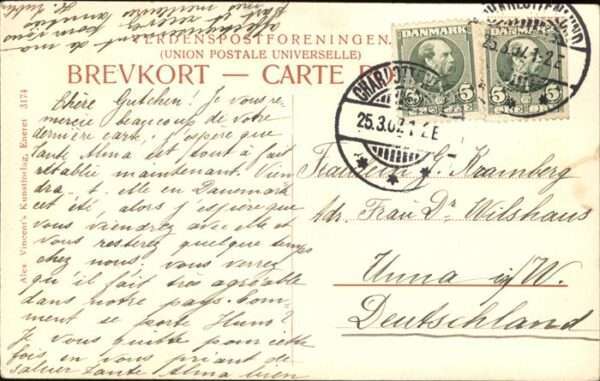 VERDENSPOSTFORENINGEN.
(UNION POSTALE UNIVERSELLE)
BREVKORT — CARTE
DANMARK
5 ØRE 5
DANMARK
5 ØRE 5
CHARLOTTENLUND
25.3.07. 1-2 E
CHARLOTTENLUND
25.3.07. 1-2 E
Alex Vincent's Kunstforlag, Eneret 3174
Chère Gutchen! Je vous re-
mercie beaucoup de votre
dernière carte. J'espère que
tante Alma est tout à fait
rétablie maintenant. Vien
dra-t-elle en Danemark
cet été, alors j'espère que
vous viendrez avec elle et
vous resterez quelque temps
chez nous; vous verrez
qu'il fait très agréable
dans notre pays. Com-
ment se porte Hans?
Je vous quitte pour cette
fois en vous priant de
saluer tante Alma bien
de ma
part et
Fräulein G. Kramberg
Adr. Frau Dr Wilshaus
Unna i/W.
Deutschland